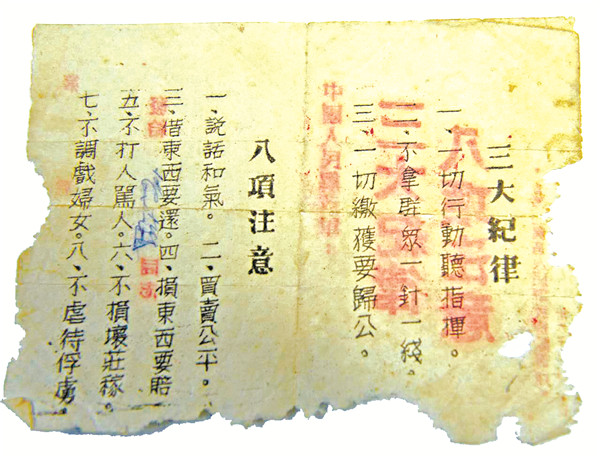 三大紀律
一、一切行動聽指揮。
二、不拿群眾一針一綫。
三、一切繳獲要歸公。
中國人民
八項注意
一、説話和氣。二、買賣公平。
三、借東西要還。四、損東西要賠
五、不打人駡人。六、不損壞莊稼。
七、不調戲婦女。八、不虐待俘虜。